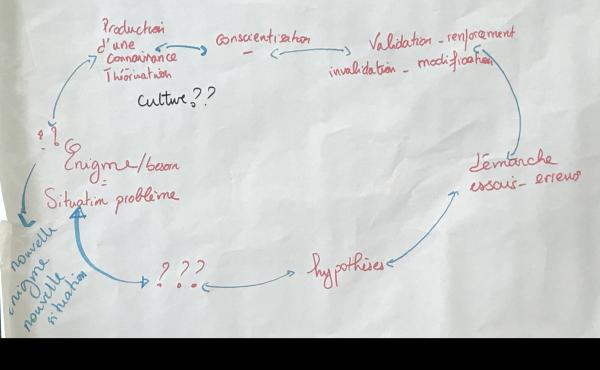 Production
d'une
connaissance
Théorisation
conscientisation
Validation - renforcement
invalidation - modification
culture??
??
Énigme/besoin
=
Situation problème
Démarche
essais - erreurs
hypothèses
???
nouvelle
énigme
nouvelle
situation